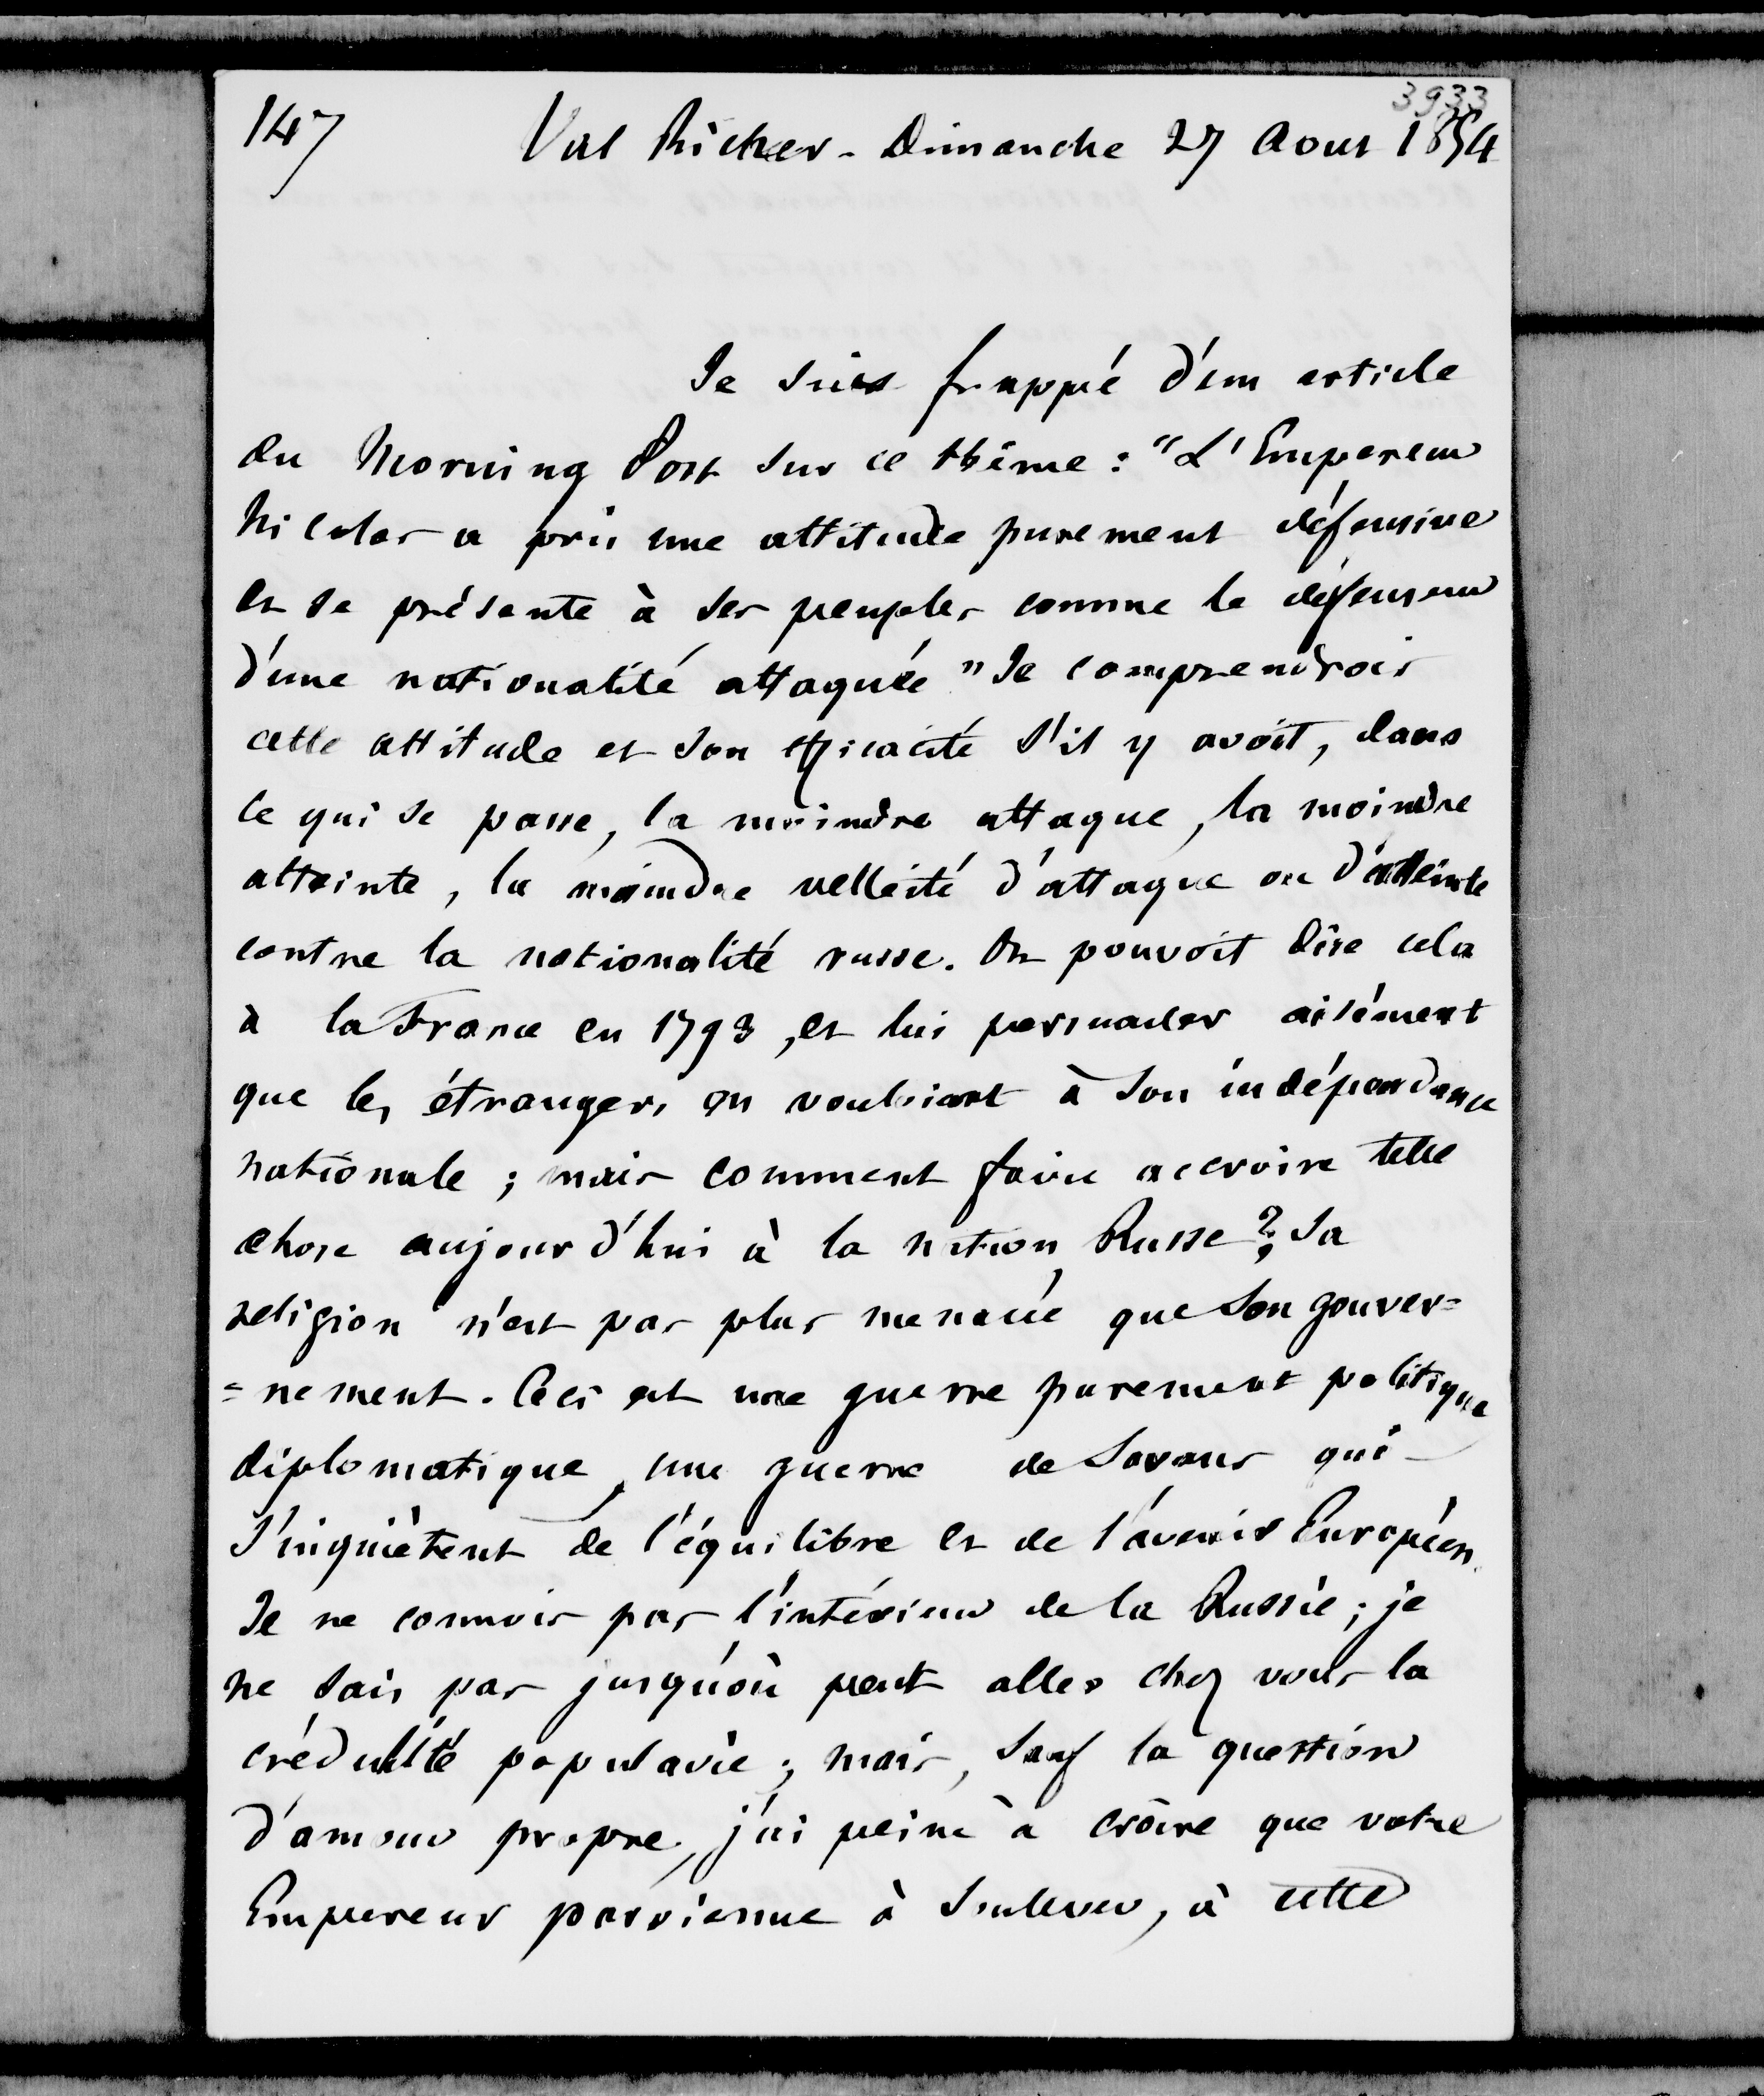 3933
147 Val Richer - Dimanche 27 Aout 1854
Je suis frappé d'un article
du Morning Post sur ce thême : "L'Empereur
Nicolas a pris une attitude purement défensive
et se présente à ses peuples comme le défenseur
d'une nationalité attaquée" Je comprendrois
cette attitude et son efficacité s'il y avoit, dans
ce qui se passe, la moindre attaque, la moindre
atteinte, la moindre velleité d'attaque ou d'atteinte
contre la nationalité russe. On pouvoit dire cela
à la France en 1793, et lui persuader aisément
que les étrangers en vouloient à son indépendance
nationale ; mais comment faire accroire telle
chose aujourd'hui à la nation Russe ? Sa
religion n'est pas plus menacée que son gouver=
=nement. Ceci est une guerre purement politique
diplomatique, une guerre de savans qui
s'inquiètent de l'équilibre et de l'avenir Européen.
Je ne connois pas l'intérieur de la Russie ; je
ne sais pas jusqu'où peut aller chez vous la
crédulité populaire ; mais, sauf la question
d'amour propre, j'ai peine à croire que votre
Empereur parvienne à soulever, à cette